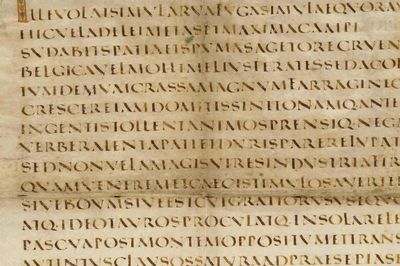 ILLEVOLATSIMVLARVAFVGASIMVLAEQVORA
HICVELADELEIMETASETMAXIMACAMPI
SVDABITSPATIAETSPVMASAGETORECRVEN
BELGICAVELMOLLIMELIVSFERATESSEDACO
TVMDEMVMCRASSAMAGNVMFARRAGINEC
CRESCEREIAMDOMITISSINITONAMQ·ANTE
INGENTISTOLLENTANIMOSPRENSIQ·NEGA
VERBERALENTAPATIETDVRISPARERELVPAT
SEDNONVLLAMAGISVIRESINDVSTRIAFIR
QVAMVENEREMETCAECISTIMVLOSAVERTE
SIVEBOVMSIVEESTCVIGRATIORVSVSEQV
ATQ·IDEOTAVROSPROCVLATQ·INSOLARELE
PASCVAPOSTMONTEMOPPOSITVMETTRANS
AVTINTVSCLAVSOSSATVRAADPRAESEPIAS